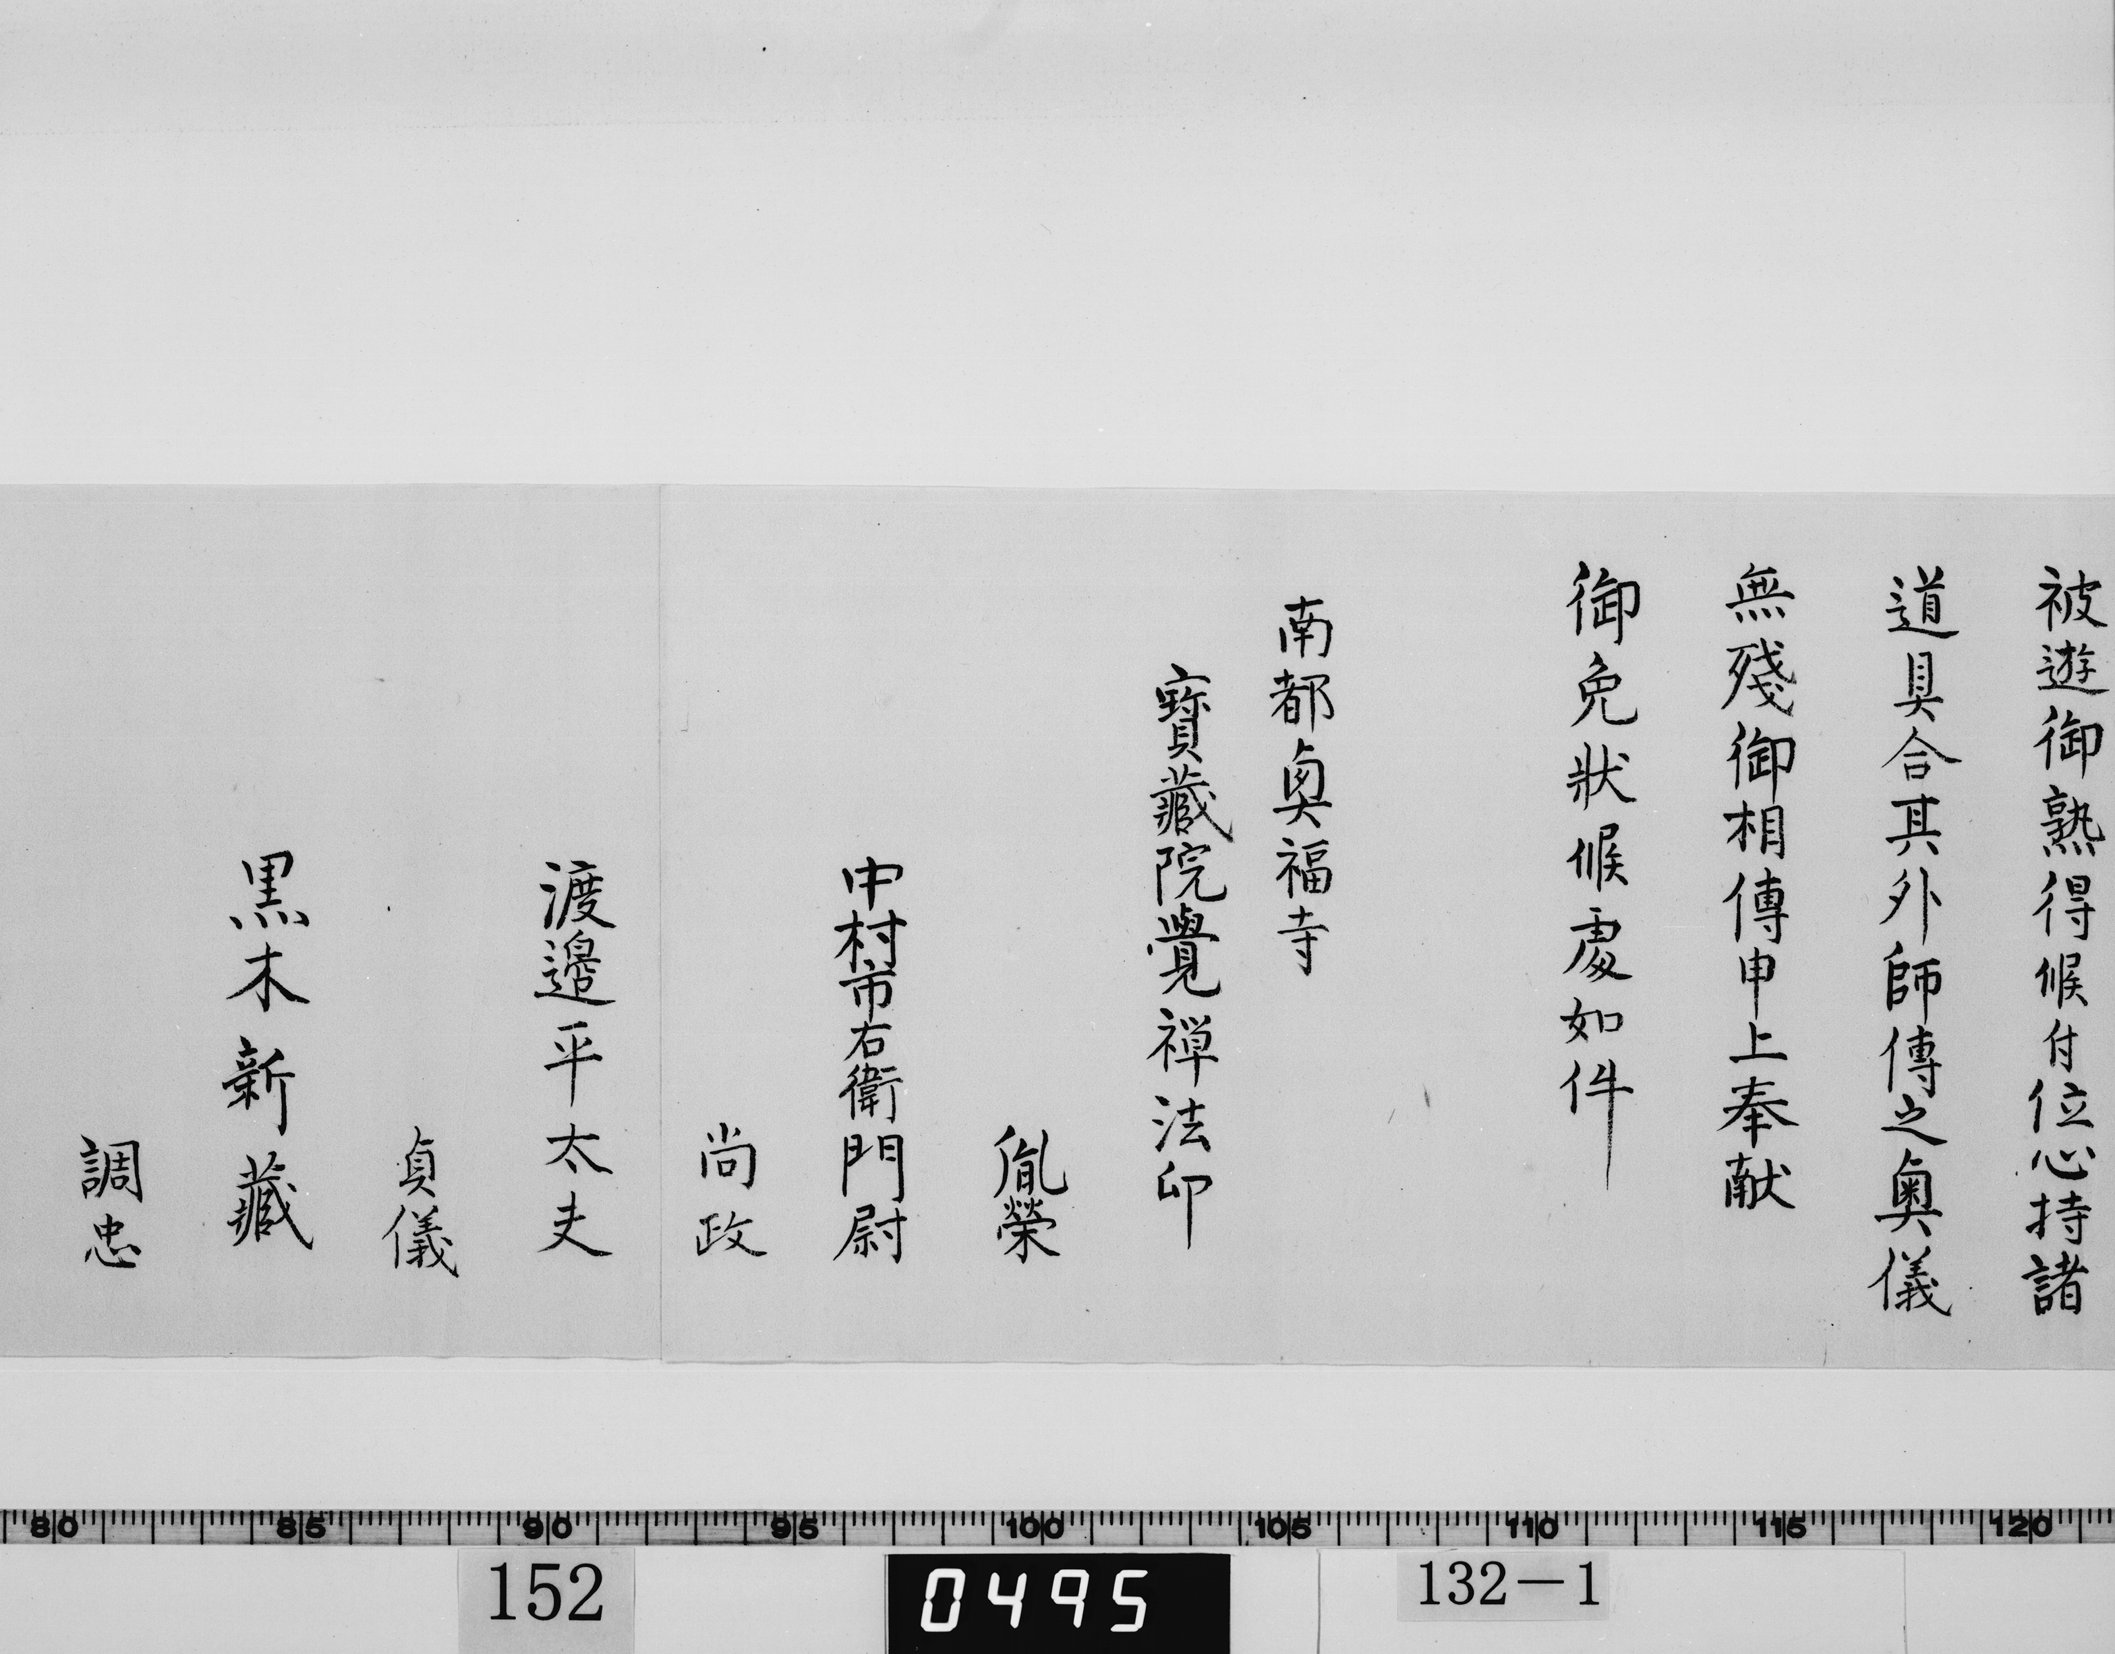 被遊御熟得候付位心持諸
道具合其外師傳之奥儀
無殘御相傳申上奉献
御免狀候處如件
南都奥福寺
寶藏院覺禅法印
胤榮
中村市右衛門尉
尚政
渡邉平太夫
貞儀
黒木新藏
調忠
80 85 90 95 100 105 110 115 120
152
0495
132-1